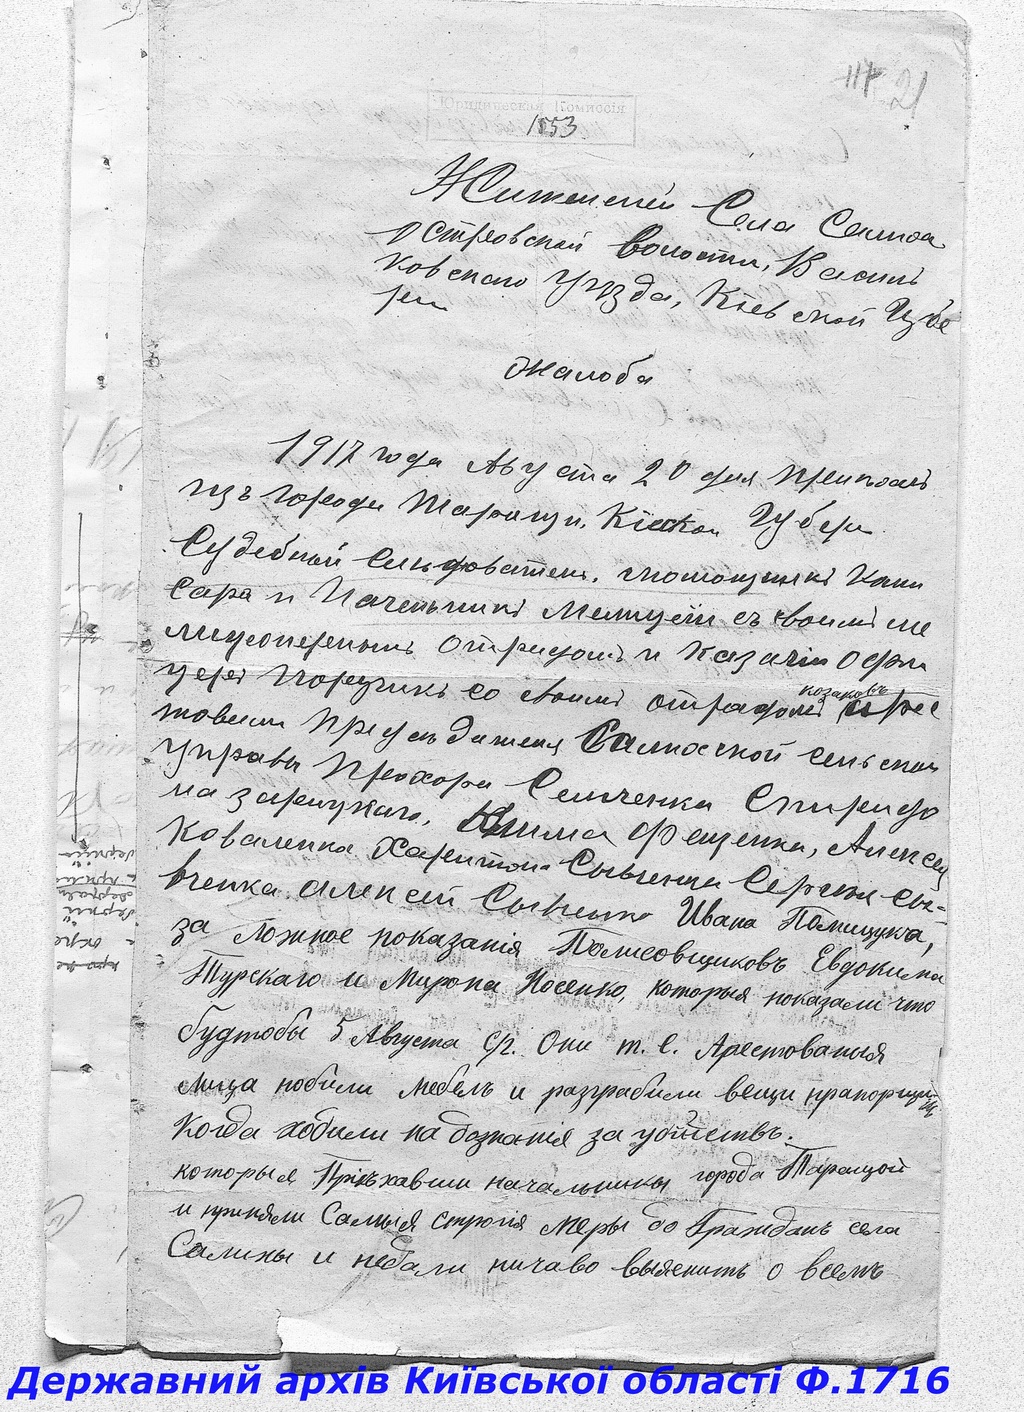 117 21
Юридическая Комиссія
1553
Жителей Села Салиха
Островской волости, Василь
ковскаго Уѣзда, Кіевской Губе
рн
Жалоба
1917 года Августа 20 дня
изъ города Таращи, Губерн
Судебный Следователь, помощникъ Коми
сара и Начельникъ Милиціи съ своимъ ми
лицонернымъ Отрядомъ и Казачій Офи
церъ Поручикъ со своимъ отрядомъ козаковъ аре
товали Предсъдателя сельской
Управы Прохора Семченка Спиридо
на Клима Фещенка, Алексея
Коваленка Харитона Сергея Сы-
вченка Алексей Ивана Полищука,
за ложное показанія Полисовщиковъ Евдокима
Турскаго и Мирона Носенко, которыя показали что
будтобы 5 Августа с/г. Они т. е. Арестованыя
лица побили мебель и разграбили вещи
Когда ходили на дознанія за убійствъ.
которыя Пріѣхавши начальники города Таращой
и приняли Самыя строгія меры до Граждань села
Салихы и недали ничаво выяснить о всемъ
Державний архів Київської області Ф.1716